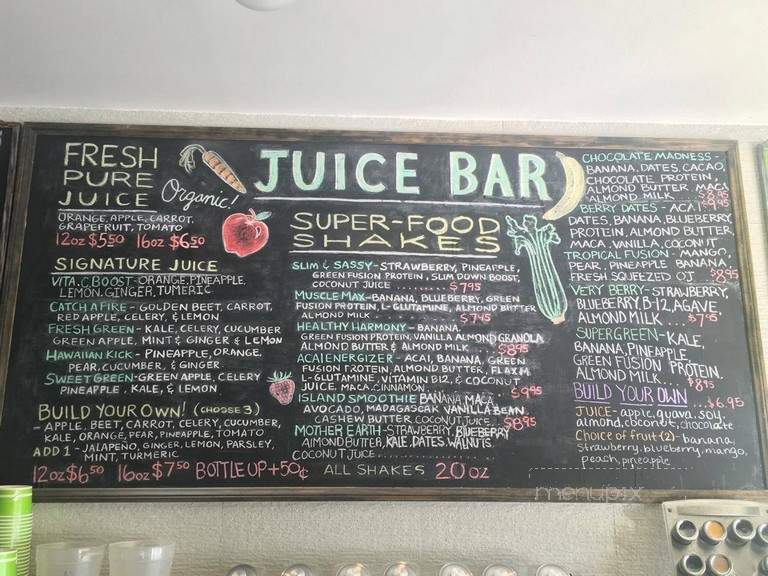 JUICE BAR
FRESH
PURE
JUICE
Organic!
ORANGE, APPLE, CARROT,
GRAPEFRUIT, TOMATO
12oz $5.50 16oz $6.50
SIGNATURE JUICE
VITA.C.BOOST - ORANGE, PINEAPPLE,
LEMON, GINGER, TUMERIC
CATCH A FIRE - GOLDEN BEET, CARROT,
RED APPLE, CELERY, & LEMON
FRESH GREEN - KALE, CELERY, CUCUMBER
GREEN APPLE, MINT & GINGER & LEMON
HAWAIIAN KICK - PINEAPPLE, ORANGE,
PEAR, CUCUMBER, & GINGER
SWEET GREEN - GREEN APPLE, CELERY
PINEAPPLE, KALE, & LEMON
BUILD YOUR OWN! (CHOOSE 3)
- APPLE, BEET, CARROT, CELERY, CUCUMBER,
KALE, ORANGE, PEAR, PINEAPPLE, TOMATO
ADD 1 - JALAPEÑO, GINGER, LEMON, PARSLEY,
MINT, TURMERIC
12oz $6.50 16oz $7.50 BOTTLE UP +50¢
SUPER-FOOD
SHAKES
SLIM & SASSY - STRAWBERRY, PINEAPPLE,
GREEN FUSION PROTEIN, SLIM DOWN BOOST,
COCONUT JUICE ........ $7.95
MUSCLE MAX - BANANA, BLUEBERRY, GREEN
FUSION PROTEIN, L-GLUTAMINE, ALMOND BUTTER
ALMOND MILK ........ $7.45
HEALTHY HARMONY - BANANA,
GREEN FUSION PROTEIN, VANILLA ALMOND GRANOLA
ALMOND BUTTER & ALMOND MILK .... $8.95
ACAI ENERGIZER - ACAI, BANANA, GREEN
FUSION PROTEIN, ALMOND BUTTER, FLAX M.
L-GLUTAMINE, VITAMIN B12, & COCONUT
JUICE. MACA. CINNAMON ........ $9.95
ISLAND SMOOTHIE BANANA, MACA,
AVOCADO, MADAGASCAR VANILLA BEAN
CASHEW BUTTER, COCONUT JUICE ... $8.95
MOTHER EARTH - STRAWBERRY, BLUEBERRY
ALMOND BUTTER, KALE, DATES, WALNUTS,
COCONUT JUICE ............
ALL SHAKES 20 OZ
CHOCOLATE MADNESS -
BANANA, DATES, CACAO,
CHOCOLATE PROTEIN,
ALMOND BUTTER, MACA
ALMOND MILK ... $8.95
BERRY DATES - ACAI
DATES, BANANA, BLUEBERRY
PROTEIN, ALMOND BUTTER,
MACA, VANILLA, COCONUT
TROPICAL FUSION - MANGO,
PEAR, PINEAPPLE BANANA
FRESH SQUEEZED OJ $8.95
VERY BERRY - STRAWBERRY,
BLUEBERRY, B-12, AGAVE
ALMOND MILK ..... $7.95
SUPER GREEN - KALE,
BANANA, PINEAPPLE,
GREEN FUSION PROTEIN,
ALMOND MILK .... $8.95
BUILD YOUR OWN
..... $6.95
JUICE - apple, guava, soy,
almond, coconut, chocolate
Choice of fruit (2) - banana
strawberry, blueberry, mango,
peach, pineapple
menupix